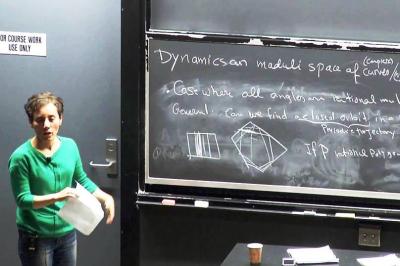 FOR COURSE WORK
USE ONLY
Dynamics on moduli space of (complex)
curves/
Case where all angles are rational mul
General: Can we find a closed orbit in a
Periodic trajectory
If P rational polygon